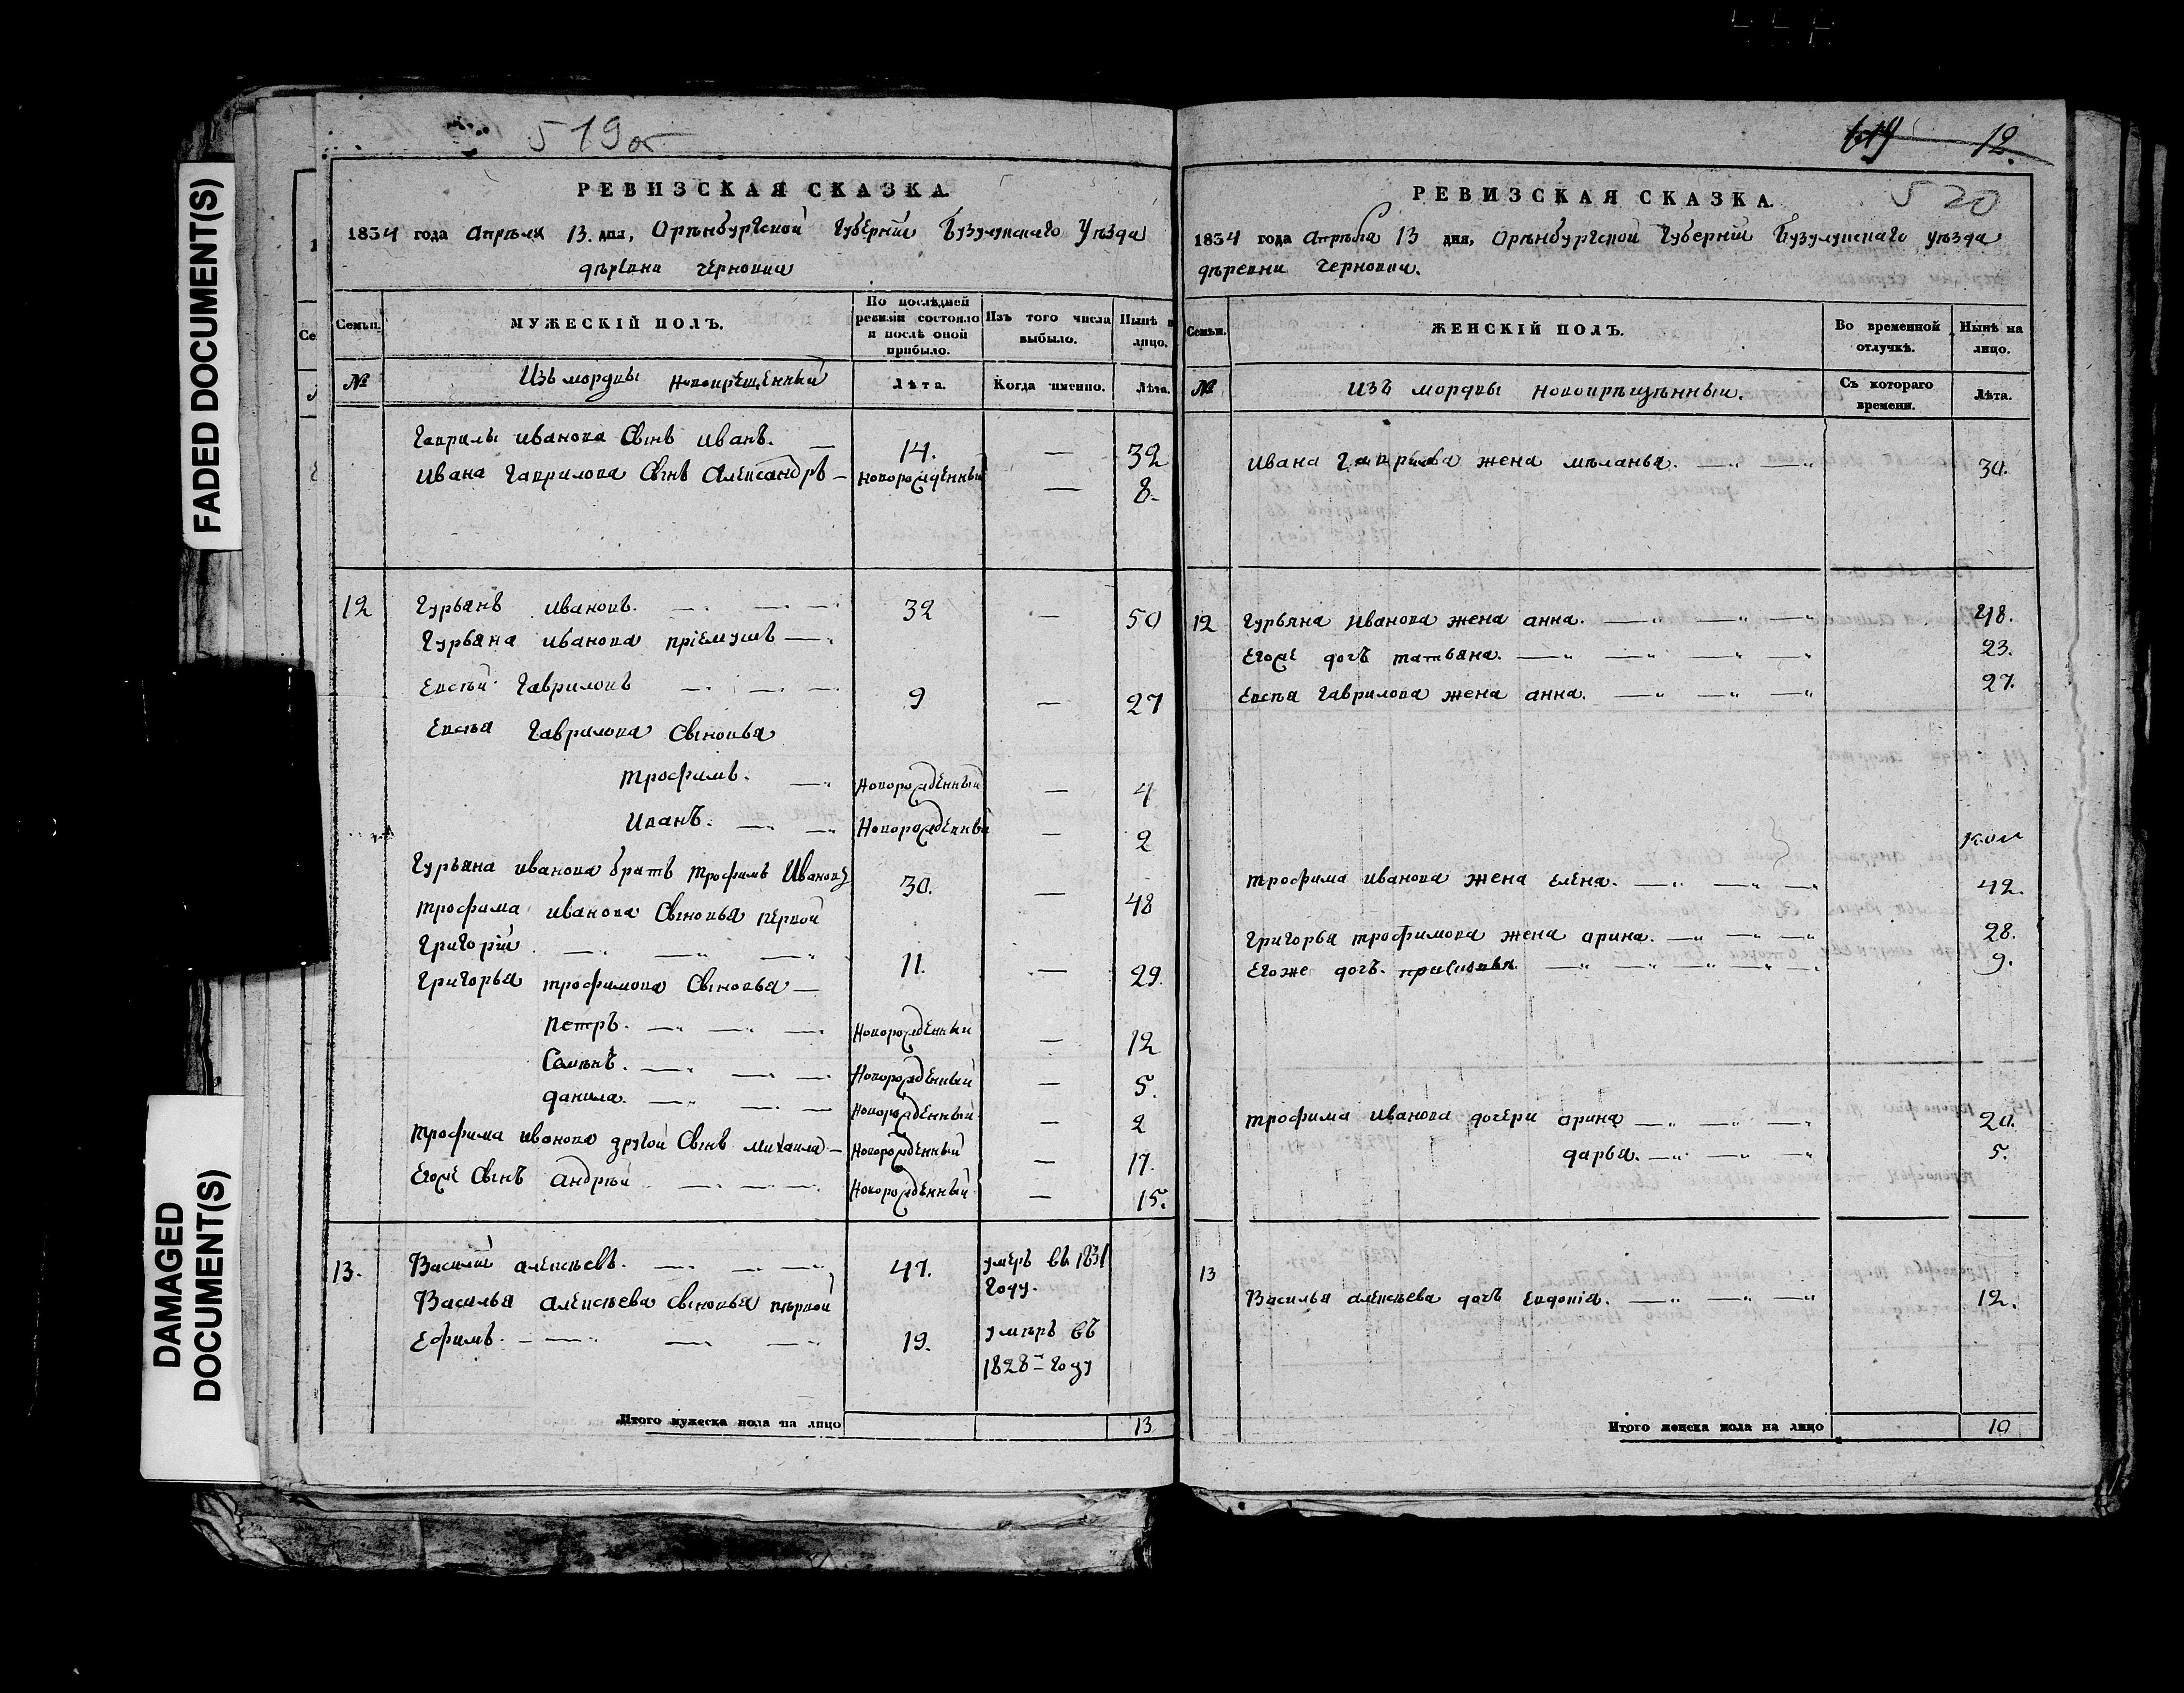 FADED DOCUMENT(S)
DAMAGED DOCUMENT(S)
519об
РЕВИЗСКАЯ СКАЗКА.
1834 года Апрѣля 13. дня, Орѣнбургской Губернiи Бузулукскаго Уѣзда
дѣревни Черновки
Семьи. МУЖЕСКIЙ ПОЛЪ. По послѣдней ревизiи состояло и послѣ оной прибыло. Изъ того числа выбыло. Нынѣ н лицо.
№ Изъ мордвы новокрещенный Лѣта. Когда именно. Лѣта.
Гаврилы иванова Сынъ иванъ. — 14. — 32
Ивана Гаврилова Сынъ Александръ — новорожденный — 8.
12 Гурьянъ ивановъ. 32 — 50
Гурьяна иванова прiемышъ
Евсѣй Гавриловъ 9 — 27
Евсѣя Гаврилова Сыновья
трофимъ. Новорожденный — 4
Иванъ. Новорожденный — 2
Гурьяна иванова братъ трофимъ Ивановъ 30. — 48
трофима иванова Сыновья первой
Григорiй 11. — 29.
Григорья трофимова Сыновья —
петръ. Новорожденный — 12
Семѣнъ. Новорожденный — 5.
данила. Новорожденный — 2
трофима иванова другой Сынъ михаила — Новорожденный — 17.
Егоже Сынъ андрѣй Новорожденный — 15.
13. Василiй алексѣевъ. 47. умеръ въ 1831 году.
Василья алексѣева Сыновья пѣрвой
Ефимъ. 19. умѣръ въ 1828м году
Итого мужеска пола на лицо 13
12.
520
РЕВИЗСКАЯ СКАЗКА.
1834 года Апрѣля 13 дня, Орѣнбургской Губернiи Бузулукскаго уѣзда
дѣревни черновки.
Семьи. ЖЕНСКIЙ ПОЛЪ. Во временной отлучкѣ. Нынѣ на лицо.
№ изъ мордвы новокрѣщѣнныи. Съ котораго времени. Лѣта.
ивана Гаврилова жена мѣланья. 30.
12 Гурьяна Иванова жена анна. 48.
Егоже дочъ татьяна. 23.
Евсѣя Гаврилова жена анна. 27.
трофима иванова жена елена. 42.
Григорья трофимова жена арина. 28.
Егоже дочъ. 9.
трофима иванова дочери арина 20.
дарья. 5.
13 Василья алексѣева дочъ Евдокiя. 12.
Итого женска пола на лицо 10